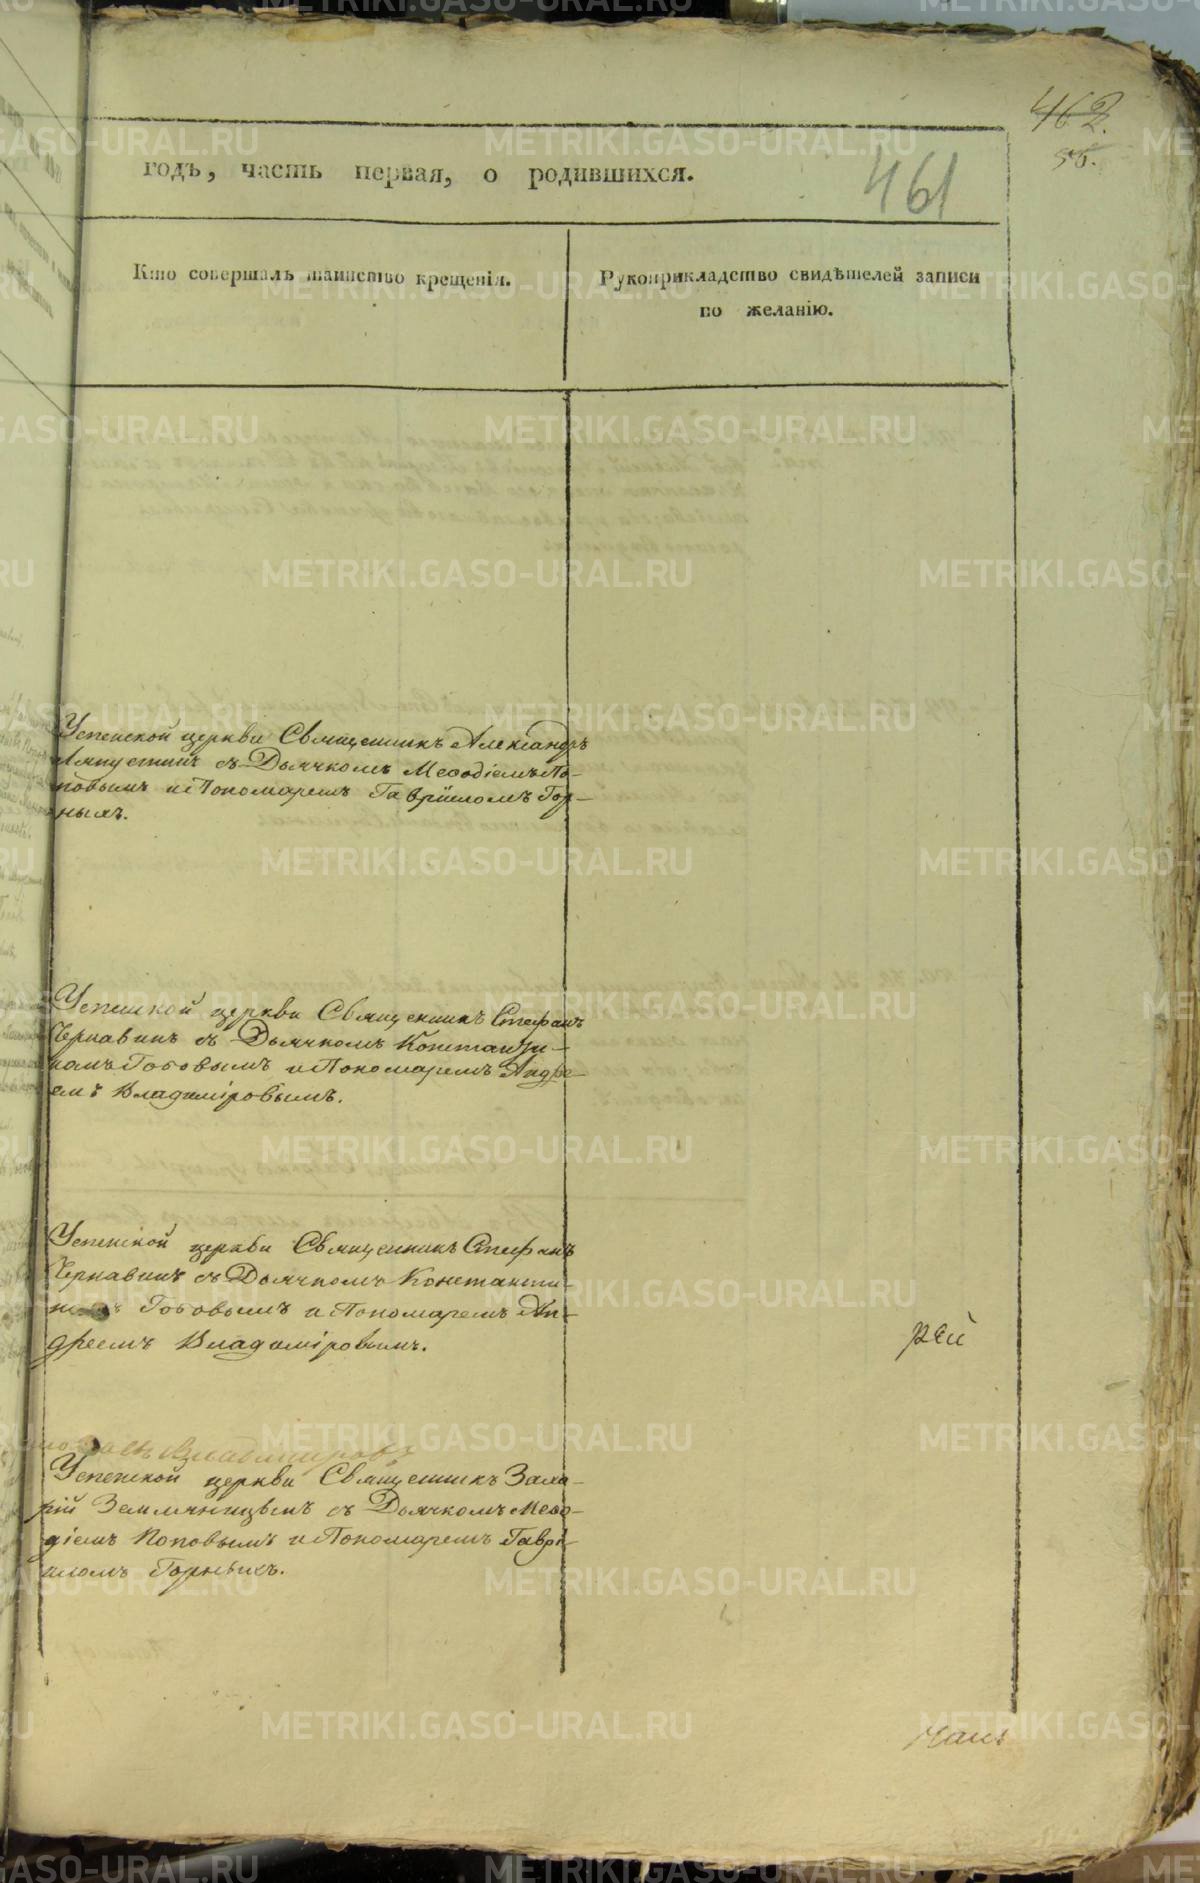 462.
56.
461
годъ, часть первая, о родившихся.
Кто совершалъ таинство крещенія.
Рукоприкладство свидѣтелей записи
по желанію.
Успенской церкви Священникъ Александръ
съ Дьячкомъ Меѳодіемъ По-
повымъ и Пономаремъ Гавріиломъ Гор-
нымъ.
Успенской церкви Священникъ Стефанъ
Чернавинъ съ Дьячкомъ Константи-
номъ Готовымъ и Пономаремъ Андре-
емъ Владиміровымъ.
Успенской церкви Священникъ Стефанъ
Чернавинъ съ Дьячкомъ Константи-
Готовымъ и Пономаремъ Ан-
дреемъ Владиміровымъ.
рей
Успенской церкви Священникъ Заха-
рій Земляницынъ съ Дьячкомъ Меѳо-
діемъ Поповымъ и Пономаремъ Гаврі-
иломъ Горныхъ.
METRIKI.GASO-URAL.RU